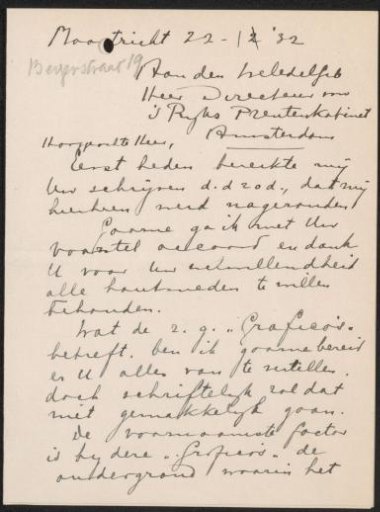 Maastricht 22-12 '32
Bergerstraat 19
Aan den WelEdelGeb
Heer Directeur van
's Ryks Prentenkabinet
Amsterdam
Hooggeachte Heer,
Eerst heden bereikte mij
Uw schrijven d.d 20 d., dat mij
hierheen werd nagezonden
Gaarne ga ik met Uw
voorstel accoord en dank
U voor Uw welwillendheid
alle houtsneden te willen
behouden.
Wat de z.g. „Grafico's"
betreft. ben ik gaarne bereid
er U alles van te vertellen.
doch schriftelyk zal dat
niet gemakkelyk gaan.
De voornaamste factor
is by deze „Grafico's" de
ondergrond waarin het